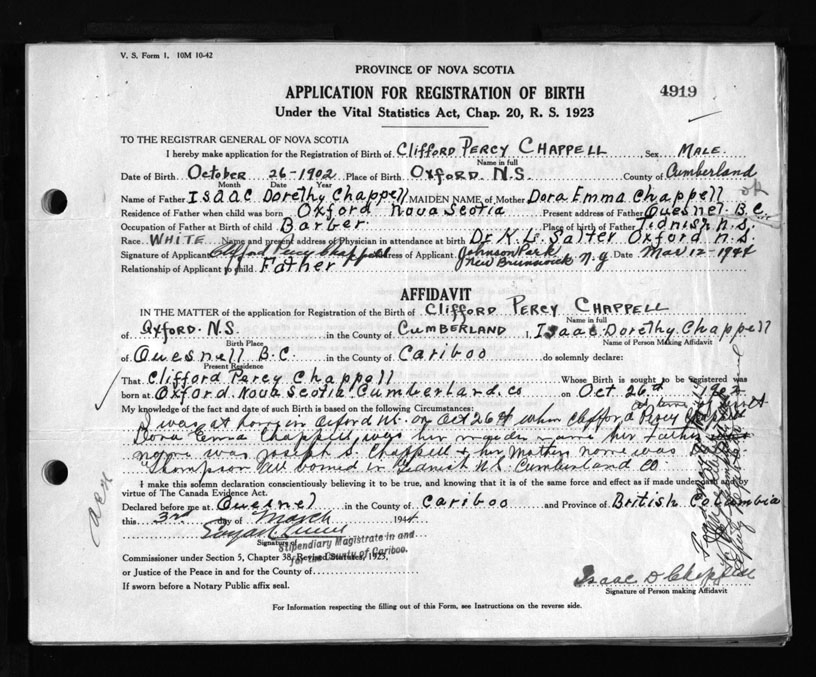 V. S. Form 1. 10M 10-42
PROVINCE OF NOVA SCOTIA
APPLICATION FOR REGISTRATION OF BIRTH
4919
Under the Vital Statistics Act, Chap. 20, R. S. 1923
TO THE REGISTRAR GENERAL OF NOVA SCOTIA
I hereby make application for the Registration of Birth of Clifford Percy Chappell, Sex Male
Name in full
Date of Birth October 26-1902 Place of Birth Oxford N.S. County of Cumberland
Month Date Year
Name of Father Isaac Dorethy Chappell MAIDEN NAME of Mother Dora Emma Chappell
Residence of Father when child was born Oxford Nova Scotia Present address of Father Quesnel B.C.
Occupation of Father at Birth of child Barber Place of birth of Father Tidnish N.S.
Race WHITE Name and present address of Physician in attendance at birth Dr Salter Oxford N.S.
Signature of Applicant Clifford Percy Chappell Address of Applicant Johnson Park New Brunswick N.J. Date Mar 12-1944
Relationship of Applicant to child Father
AFFIDAVIT
IN THE MATTER of the application for Registration of the Birth of Clifford Percy Chappell
Name in full
of Oxford N.S. in the County of Cumberland I, Isaac Dorethy Chappell
Birth Place Name of Person Making Affidavit
of Quesnell B.C. in the County of Cariboo do solemnly declare:
Present Residence
That Clifford Percy Chappell Whose Birth is sought to be registered was
born at Oxford Nova Scotia Cumberland Co on Oct 26th 1902
My knowledge of the fact and date of such Birth is based on the following Circumstances:
I was at home in Oxford N.S. on Oct 26th when Clifford Percy
Dora Emma Chappell was her maiden name her Fathers
name was Joseph S. Chappell & her Mothers name was
Thompson in N.S. Cumberland Co
I make this solemn declaration conscientiously believing it to be true, and knowing that it is of the same force and effect as if made under oath and by
virtue of The Canada Evidence Act.
Declared before me at Quesnel in the County of Cariboo and Province of British Columbia
this 3rd day of March 1944
Signature of
Stipendiary Magistrate in and
for the County of Cariboo.
Commissioner under Section 5, Chapter 38, Revised Statutes, 1923,
or Justice of the Peace in and for the County of
Isaac D Chappell
Signature of Person making Affidavit
If sworn before a Notary Public affix seal.
For Information respecting the filling out of this Form, see Instructions on the reverse side.